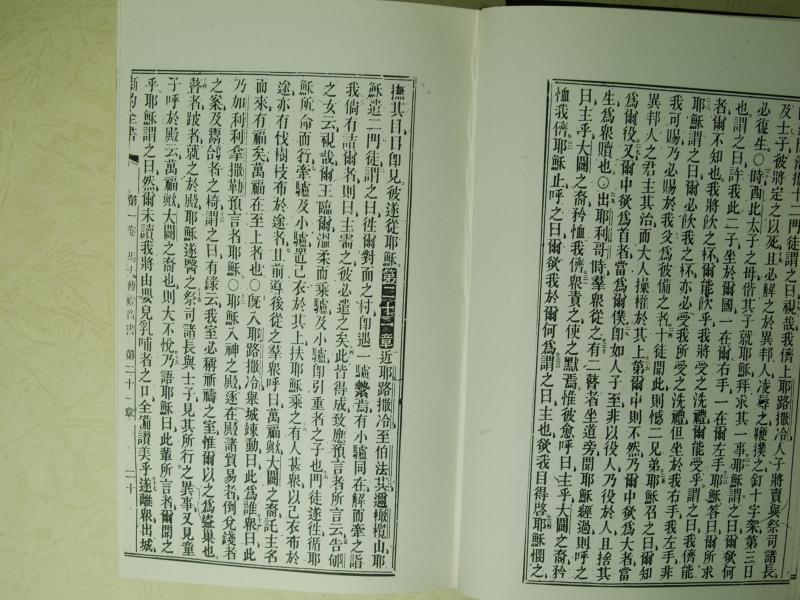 及士子彼將定之以死且必解之於異邦人凌辱之鞭撲之釘十字架第三日
必復生○時西比太子之母偕其子就耶穌拜求其一事耶穌謂之曰爾欲何
也謂之曰許我此二子坐於爾國一在爾右手一在爾左手耶穌答曰爾所求
者爾不知也我將飲之杯爾能飲乎我將受之洗禮爾能受乎謂之曰我儕能
耶穌謂之曰爾必飲我之杯亦必受我所受之洗禮但坐於我右手我左手非
我可賜乃必賜於我父為彼備之者十徒聞此則憾二兄弟耶穌召之曰爾知
異邦人之君主其治而大人操權於其上第爾中則不然乃爾中欲為大者當
為爾役又爾中欲為首者當為爾僕即如人子至非以役人乃役於人且捨其
生為眾贖也○出耶利哥時羣眾從之有二瞽者坐道旁聞耶穌經過則呼之
曰主乎大闢之裔矜恤我儕眾責之使之默焉惟彼愈呼曰主乎大闢之裔矜
恤我儕耶穌止呼之曰爾欲我於爾何為謂之曰主也欲我目得啓耶穌憫之
撫其目目即見彼遂從耶穌第二十一章近耶路撒冷至怕法其邇橄欖山耶
穌遣二門徒謂之曰徃爾對面之村即遇一驢繫焉有小驢同在解而牽之詣
我倘有詰爾者則曰主需之彼必遣之矣此皆得成致應預言者所言云告郇
之女云視哉爾王臨爾溫柔而乘驢及小驢即引重者之子也門徒遂徃循耶
穌所命而行牽驢及小驢置己衣於其上扶耶穌乘之有人甚眾以己衣布於
途亦有伐樹枝布於途者且前導後從之羣眾呼曰萬福歟大闢之裔託主名
而來有福矣萬福在至上者也○既入耶路撒冷舉城竦動曰此為誰眾曰此
乃加利利拿撒勒預言者耶穌○耶穌入神之殿逐在殿諸貿易者倒兌錢者
之案及鬻鴿者之椅謂之曰有錄云我室必稱祈禱之室惟爾以之為盜巢也
瞽者跛者就之於殿耶穌遂醫之祭司諸長與士子見其所行之異事又見童
子呼於殿云萬福歟大闢之裔也則大不悅乃語耶穌曰此輩所言者爾聞之
乎耶穌謂之曰然爾未讀我將由嬰兒乳哺者之口全備讚美乎遂離眾出城
新約全書 第一卷 馬太傳福音書 第二十一章 二十